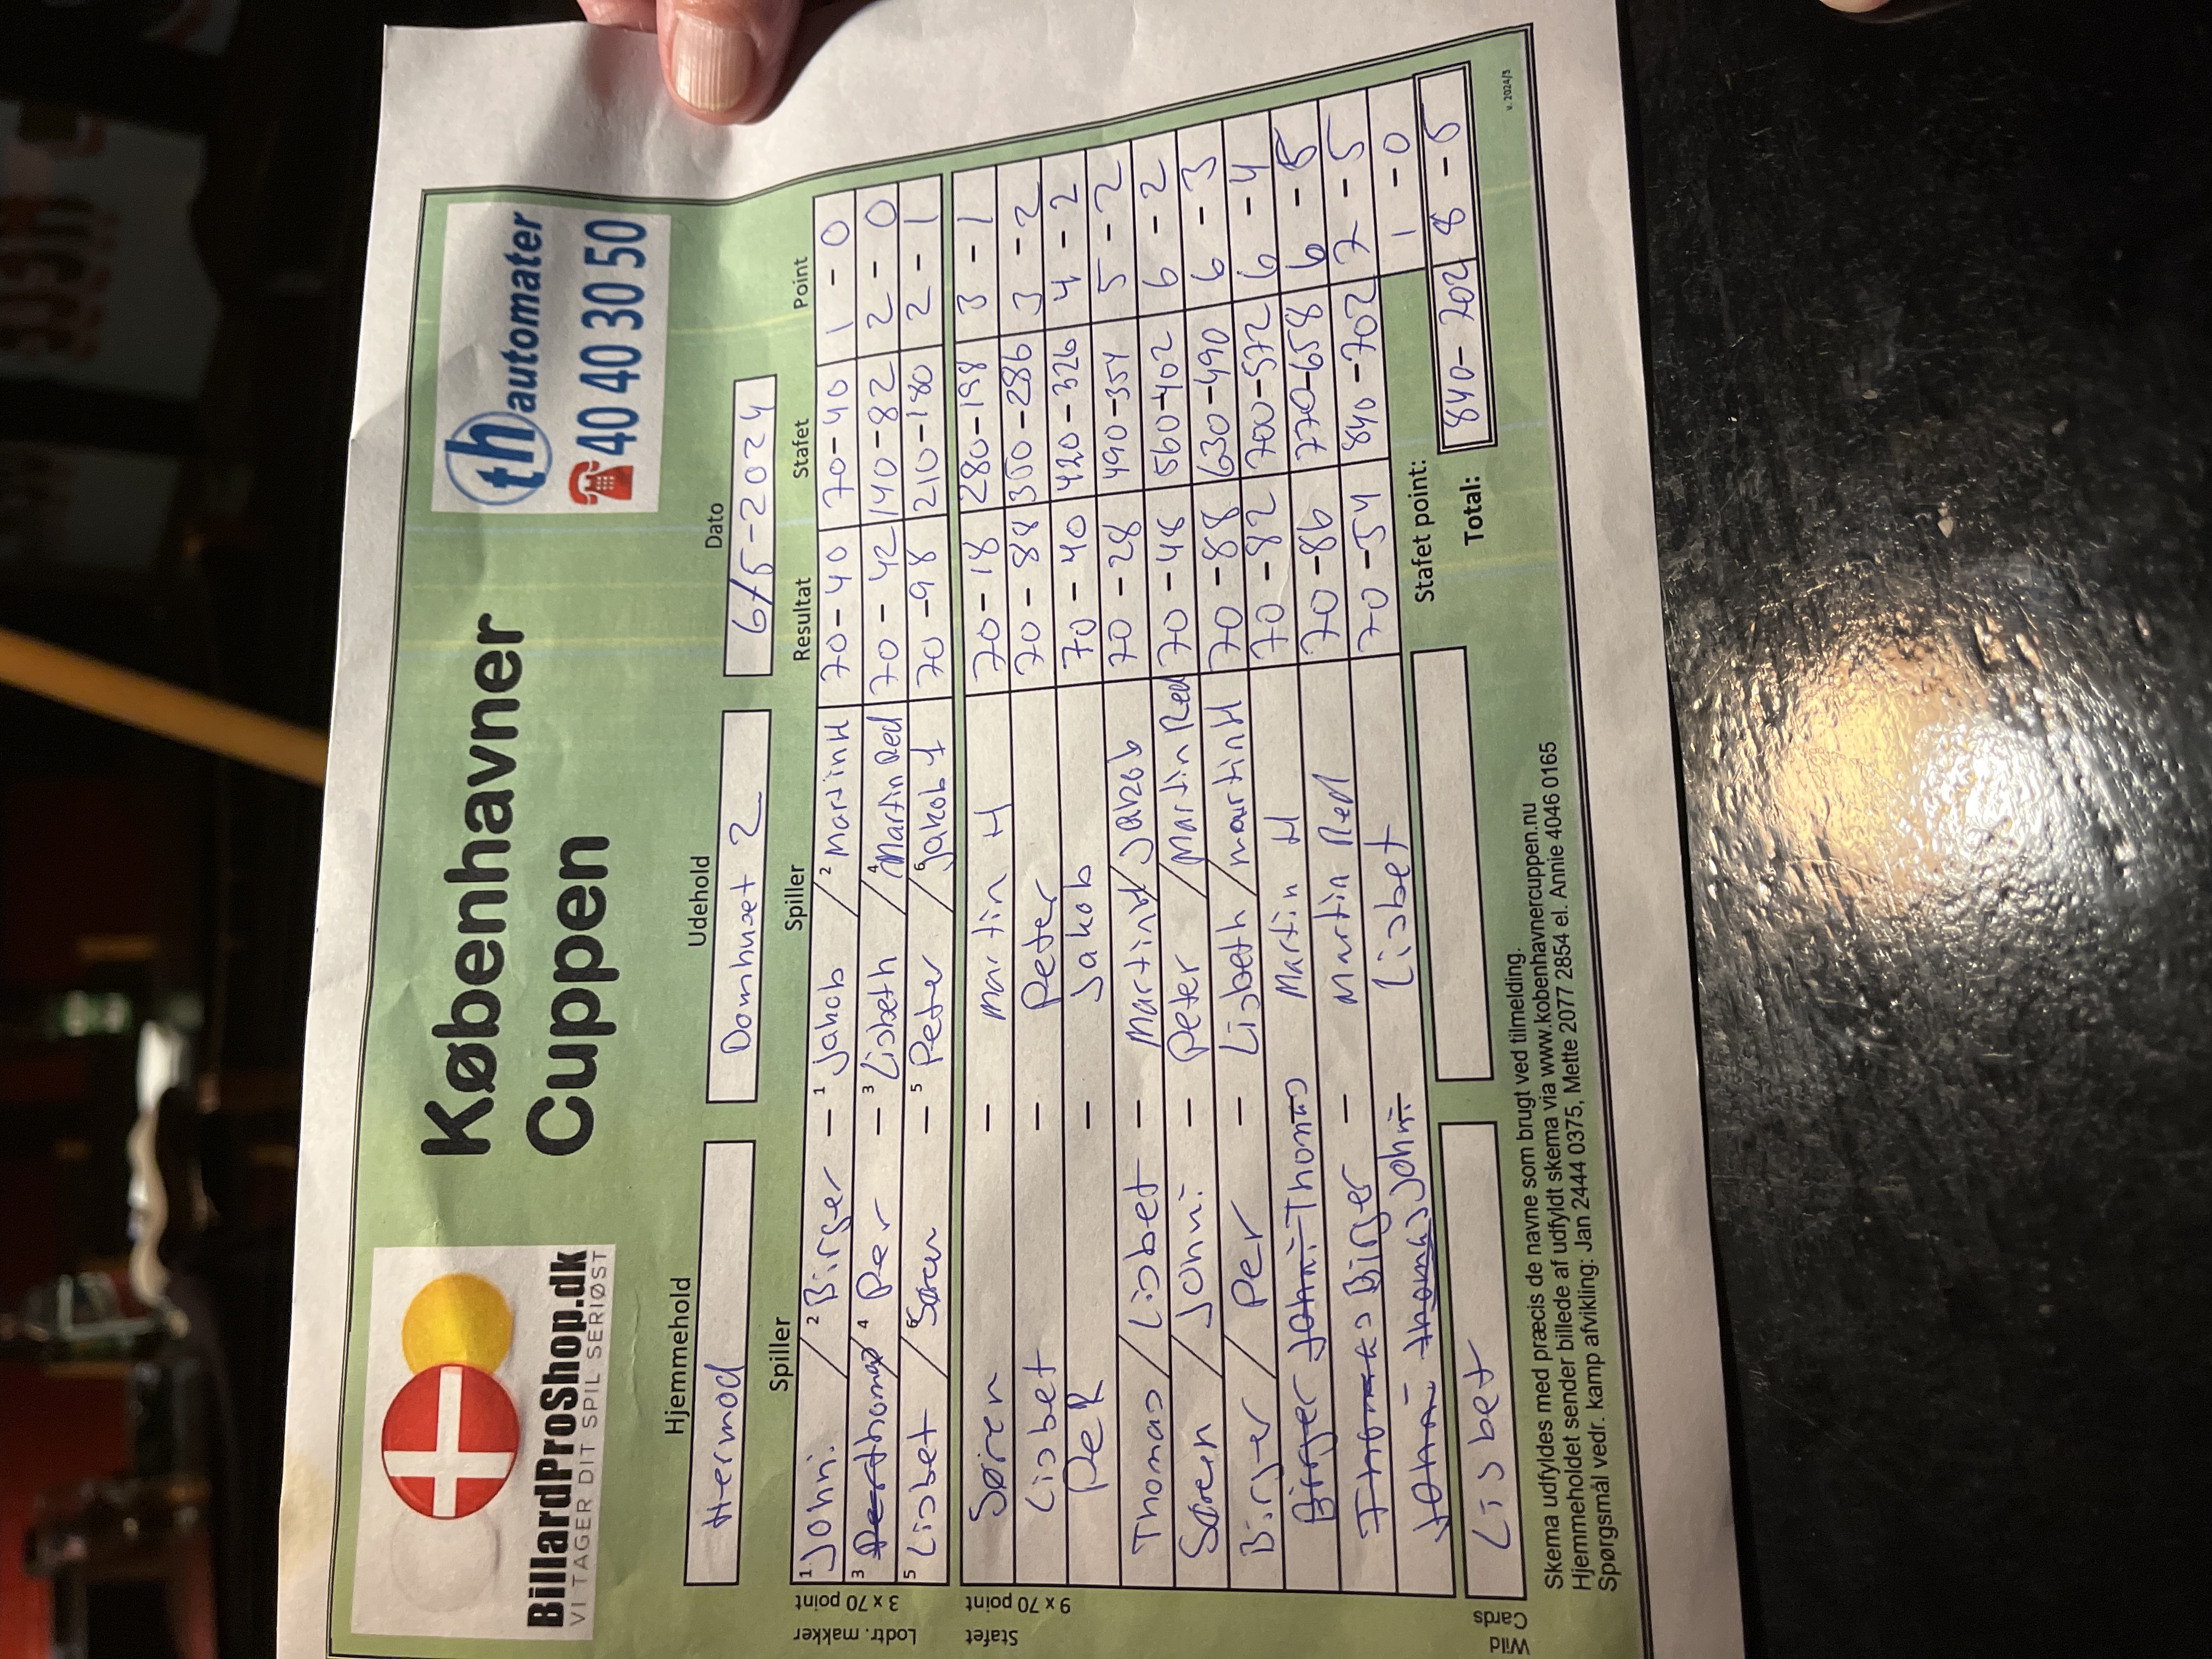 BillardProShop.dk
VI TAGER DIT SPIL SERIØST
Københavner
Cuppen
th automater
40 40 30 50
Hjemmehold Udehold Dato
Hermod Domhuset 2 6/5-2024
Spiller Spiller Resultat Stafet Point
Lodtr. makker 3 x 70 point
1 Johni / 2 Birger - 1 Jakob / 2 MartinH 70-40 70-40 1-0
3 Per thomas / 4 Per - 3 Lisbeth / 4 Martin Red 70-42 140-82 2-0
5 Lisbet / 6 Søren - 5 Peter / 6 Jakob 70-98 210-180 2-1
Stafet 9 x 70 point
Søren - martin H 70-18 280-198 3-1
Lisbet - Peter 70-88 350-286 3-2
PeR - Jakob 70-40 420-326 4-2
Thomas / Lisbet - MartinH / Jakob 70-28 490-354 5-2
Søren / Johni - Peter / Martin Red 70-48 560-402 6-2
Birger / Per - Lisbeth / martinH 70-88 630-490 6-3
Birger Johni Thomas Martin H 70-82 700-572 6-4
Thomas Birger - Martin Red 70-86 770-658 6-5
Johni thomas Johni - Lisbet 70-54 840-702 7-5
Stafet point: 1-0
Wild Cards
Lisbet
Total: 840-702 8-5
Skema udfyldes med præcis de navne som brugt ved tilmelding.
Hjemmeholdet sender billede af udfyldt skema via www.kobenhavnercuppen.nu
Spørgsmål vedr. kamp afvikling: Jan 2444 0375, Mette 2077 2854 el. Annie 4046 0165
v. 2024/3